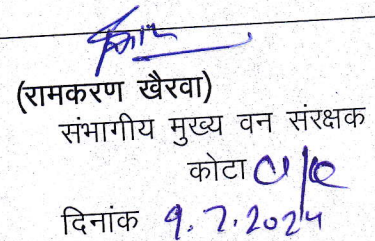 (रामकरण खैरवा)
संभागीय मुख्य वन संरक्षक
कोटा
दिनांक 9.7.2024